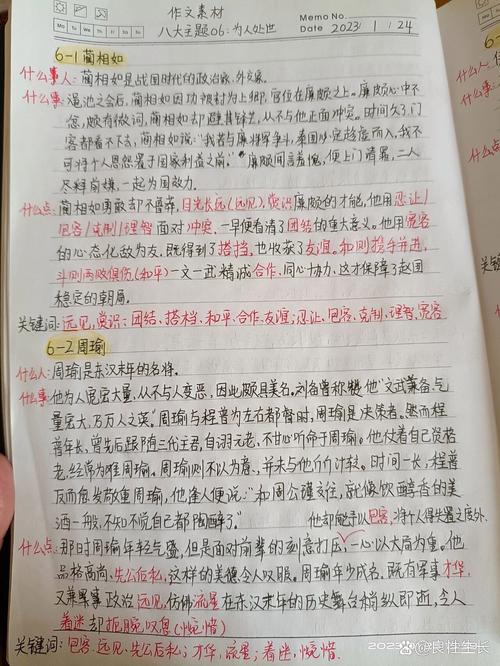 作文素材
八大主题06:为人处世
Memo No.
Mo Tu We Th Fr Sa Su
Date 2023 / 1 / 24
6-1 蔺相如
什么人:蔺相如是战国时代的政治家、外交家。
什么事:渑池之会后,蔺相如因功被封为上卿,官位在廉颇之上。廉颇心中不
怨,颇有微词,蔺相如却避其锋芒,从不与他正面冲突。时间久了,门
客都看不下去,蔺相如说:"我若与廉将军争斗,秦国必定趁虚而入,我不
可将个人恩怨置于国家利益之前。"廉颇闻言羞愧,便上门请罪,二人
尽释前嫌,一起为国效力。
什么点:蔺相如勇敢却不鲁莽,目光长远(远见),赏识廉颇的才能,他用忍让/
包容/克制/理智面对冲突,一早便看清了团结的重大意义。他用宽容
的心态化敌为友,既得到了搭挡,也收获了友谊。和则携手并进,
斗则两败俱伤(和平)一文一武精诚合作,同心协力,这才保障了赵国
稳定的朝局。
关键词:远见、赏识;团结、搭档、和平、合作、友谊;忍让、包容、克制、理智、宽容
6-2 周瑜
什么人:周瑜是东汉末年的名将。
什么事:他为人宽宏大量,从不与人变恶,因此颇具美名。刘备曾称他"文武兼备,气
量宏大,乃万人之英"。周瑜与程普为左右都督时,周瑜是决策者。然而程
普年长,曾先后跟随三代主君,自诩元老,不甘心听命于周瑜。他仗着自己资格
老,经常为难周瑜。周瑜则不以为意,并未与他斤斤计较。时间一长,程普
反而愈发敬重周瑜,他逢人便说:"和周公瑾交往,就像饮醇香的美
酒一般,不知不觉自己都陶醉了。" 他却能予以包容,将个人得失置之度外。
什么点:那时周瑜年轻气盛,但是面对前辈的刻意打压,一心以大局为重。他
品格高尚,先公后私,这样的美德令人叹服。周瑜年少成名,既有军事才华,
又兼具政治远见,仿佛流星在东汉末年的历史舞台稍纵即逝,令人
着迷却扼腕叹息(惋惜)
关键词:包容、远见、先公后私;才华,流星;着迷、惋惜.
2023 良性生长